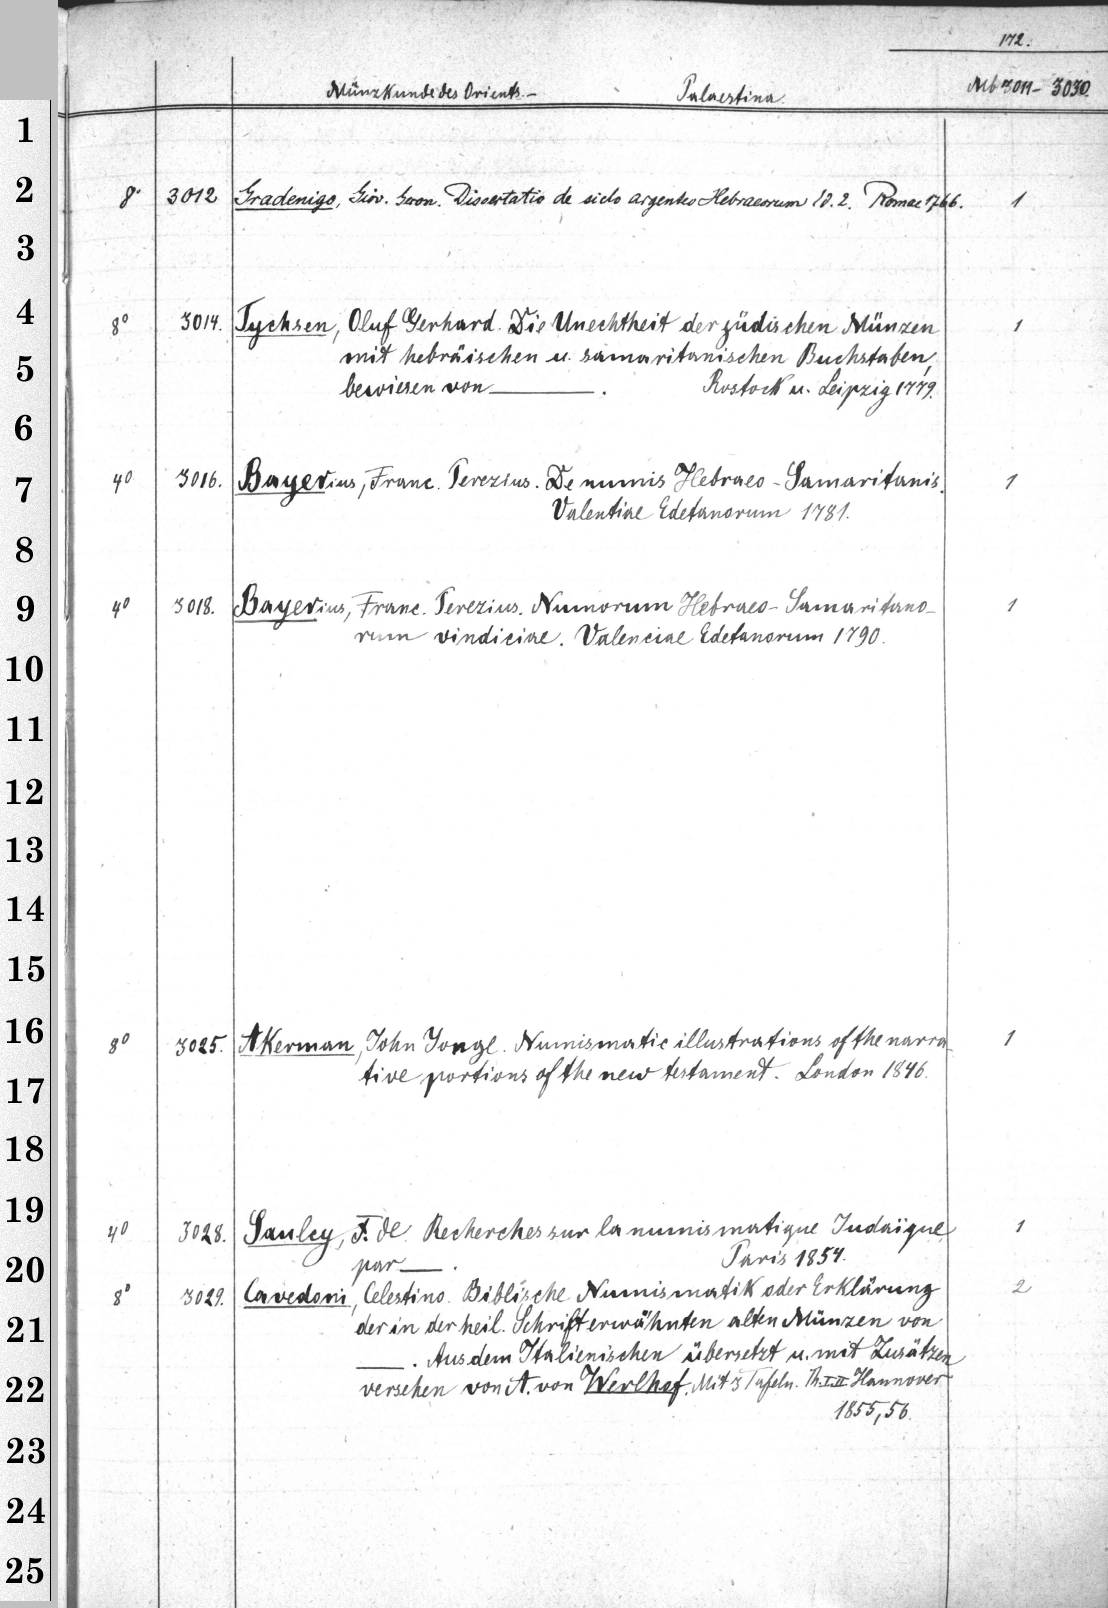 172.
Münzkunde des Orients. — Palaestina. Mb 3011 – 3030.
1
2
8° 3012 Gradenigo, Giov. Geron. Dissertatio de siclo argenteo Hebraeorum Ed. 2. Romae 1766. 1
3
4
8° 3014. Tychsen, Oluf Gerhard. Die Unechtheit der jüdischen Münzen 1
mit hebräischen u. samaritanischen Buchstaben,
5
bewiesen von ———. Rostock u. Leipzig 1779.
6
7
4° 3016. Bayerius, Franc. Perezius. De numis Hebraeo - Samaritanis. 1
Valentiae Edetanorum 1781.
8
9
4° 3018. Bayerius, Franc. Perezius. Numorum Hebraeo - Samaritano- 1
rum vindiciae. Valenciae Edetanorum 1790.
10
11
12
13
14
15
16
8° 3025. Akerman, John Yonge. Numismatic illustrations of the narra- 1
tive portions of the new testament. London 1846.
17
18
19
4° 3028. Saulcy, F. de Recherches sur la numismatique Judaïque 1
par ——. Paris 1854.
20
8° 3029. Cavedoni, Celestino. Biblische Numismatik oder Erklärung 2
der in der heil. Schrift erwähnten alten Münzen von
21
——. Aus dem Italienischen übersetzt u. mit Zusätzen
versehen von A. von Werlhof. Mit 3 Tafeln. Th. I. II Hannover
22
1855, 56.
23
24
25